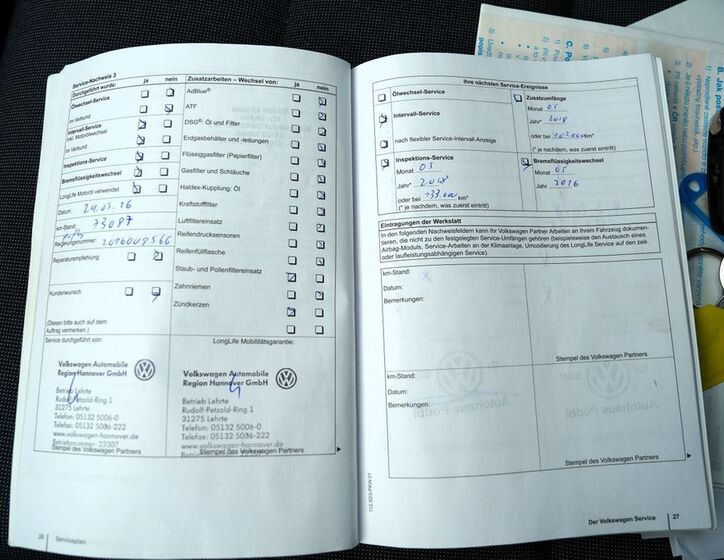 Service-Nachweis 3
Durchgeführt wurde: ja nein
Ölwechsel-Service
im Verbund
Intervall-Service
inkl. Motorölwechsel
im Verbund
Inspektions-Service
Bremsflüssigkeitswechsel
LongLife Motoröl verwendet
Datum: 24.05.16
km-Stand: 73087
Rechnungsnummer:
Reparaturempfehlung
Kundenwunsch
(Diesen bitte auch auf dem
Auftrag vermerken.)
Zusatzarbeiten – Wechsel von: ja nein
AdBlue®
ATF
DSG®: Öl und Filter
Erdgasbehälter und -leitungen
Flüssiggasfilter (Papierfilter)
Gasfilter und Schläuche
Haldex-Kupplung: Öl
Kraftstofffilter
Luftfiltereinsatz
Reifendrucksensoren
Reifenfüllflasche
Staub- und Pollenfiltereinsatz
Zahnriemen
Zündkerzen
Service durchgeführt von:
Volkswagen Automobile
Region Hannover GmbH
Betrieb Lehrte
Rudolf-Petzold-Ring 1
31275 Lehrte
Telefon: 05132 5006-0
Telefax: 05132 5006-222
www.volkswagen-hannover.de
Betriebsnummer: 22307
Stempel des Volkswagen Partners
LongLife Mobilitätsgarantie:
Volkswagen Automobile
Region Hannover GmbH
Betrieb Lehrte
Rudolf-Petzold-Ring 1
31275 Lehrte
Telefon: 05132 5006-0
Telefax: 05132 5006-222
www.volkswagen-hannover.de
Stempel des Volkswagen Partners
Serviceplan
Ihre nächsten Service-Ereignisse
Ölwechsel-Service
Intervall-Service
nach flexibler Service-Intervall-Anzeige
Inspektions-Service
Monat 05
Jahr* 2018
oder bei 133.000 km*
(* je nachdem, was zuerst eintritt)
Zusatzumfänge
Monat 05
Jahr* 2018
oder bei km*
(* je nachdem, was zuerst eintritt)
Bremsflüssigkeitswechsel
Monat 05
Jahr 2016
Eintragungen der Werkstatt
In den folgenden Nachweisfeldern kann Ihr Volkswagen Partner Arbeiten an Ihrem Fahrzeug dokumen-
tieren, die nicht zu den festgelegten Service-Umfängen gehören (beispielsweise den Austausch eines
Airbag-Moduls, Service-Arbeiten an der Klimaanlage, Umcodierung des LongLife Service auf den zeit-
oder laufleistungsabhängigen Service).
km-Stand:
Datum:
Bemerkungen:
Stempel des Volkswagen Partners
km-Stand:
Datum:
Bemerkungen:
Stempel des Volkswagen Partners
Der Volkswagen Service 27